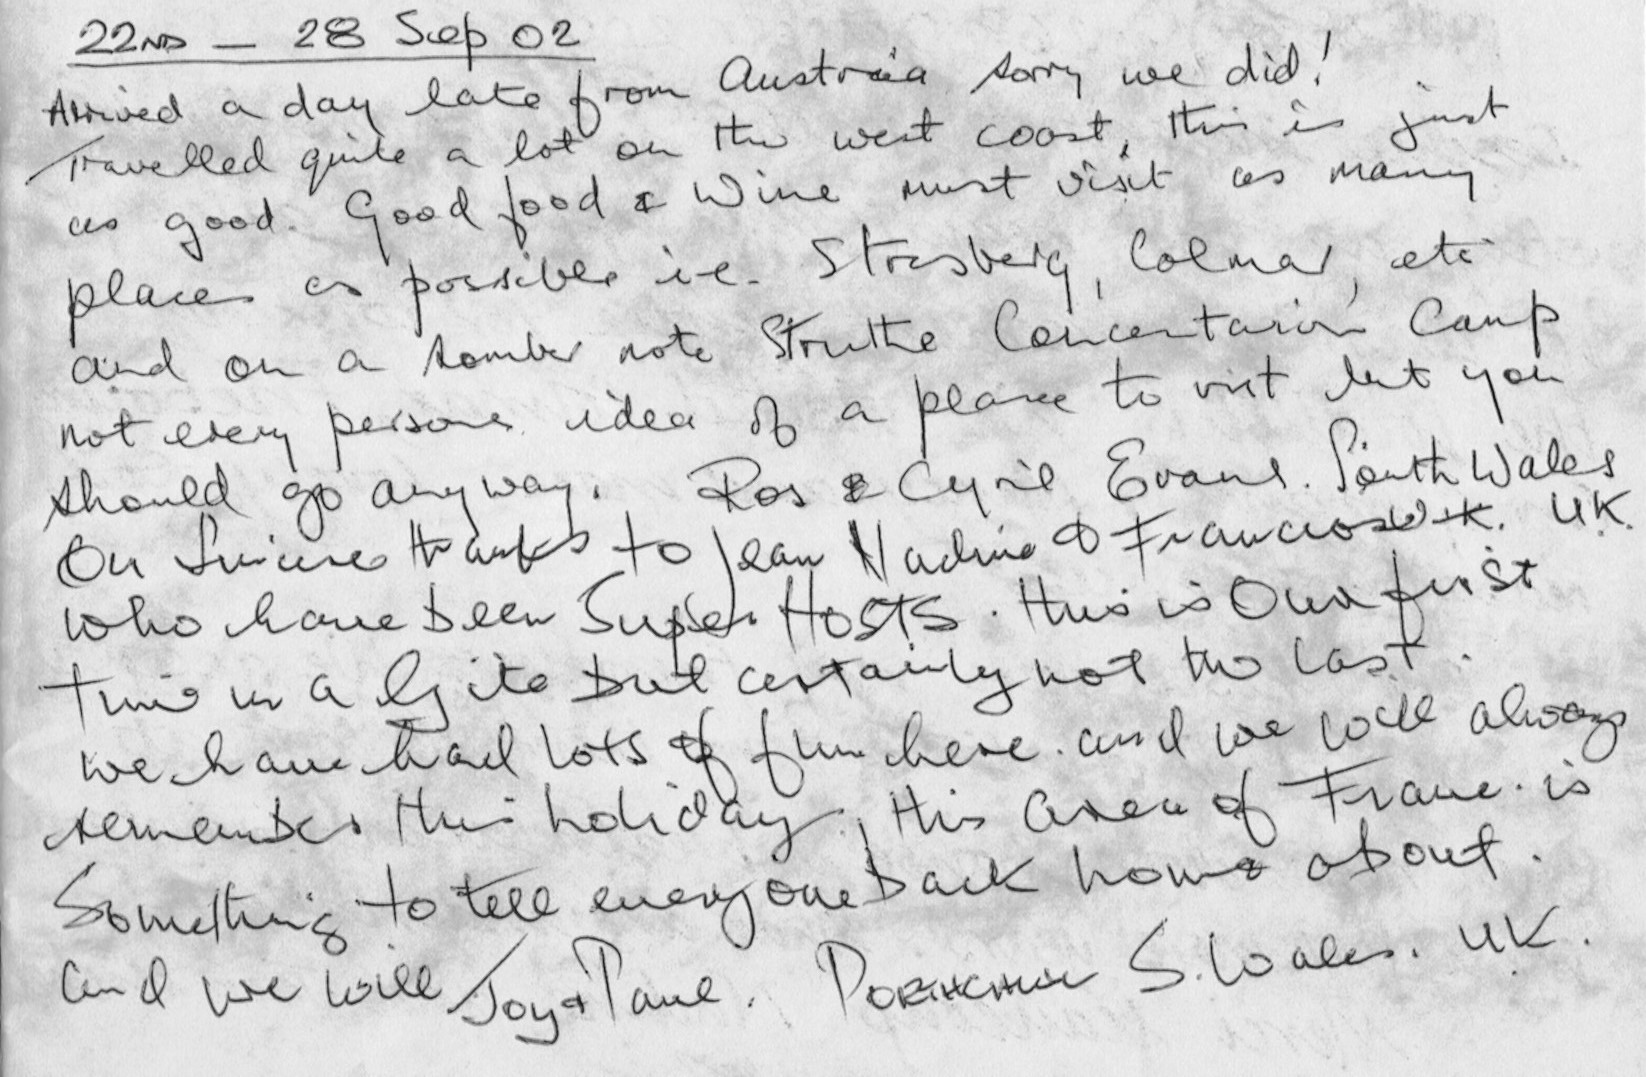 22ND - 28 Sep 02
Arrived a day late from Austria sorry we did!
Travelled quite a lot on the west coast, this is just
as good. Good food & Wine must visit as many
places as possible i.e. Strasberg, Colmar, etc
and on a somber note Struthe Concentarion Camp
not every persons idea of a place to visit but you
should go anyway. Ros & Cyril Evans. South Wales
UK.
Our Sincere thanks to Jean Nadine & Francios
who have been Super Hosts. this is Our first
time in a Gite but certainly not the last.
we have had lots of fun here. and we will always
remember this holiday, this area of France. is
Something to tell everyone back home about.
and we will Joy & Paul. S. Wales. UK.